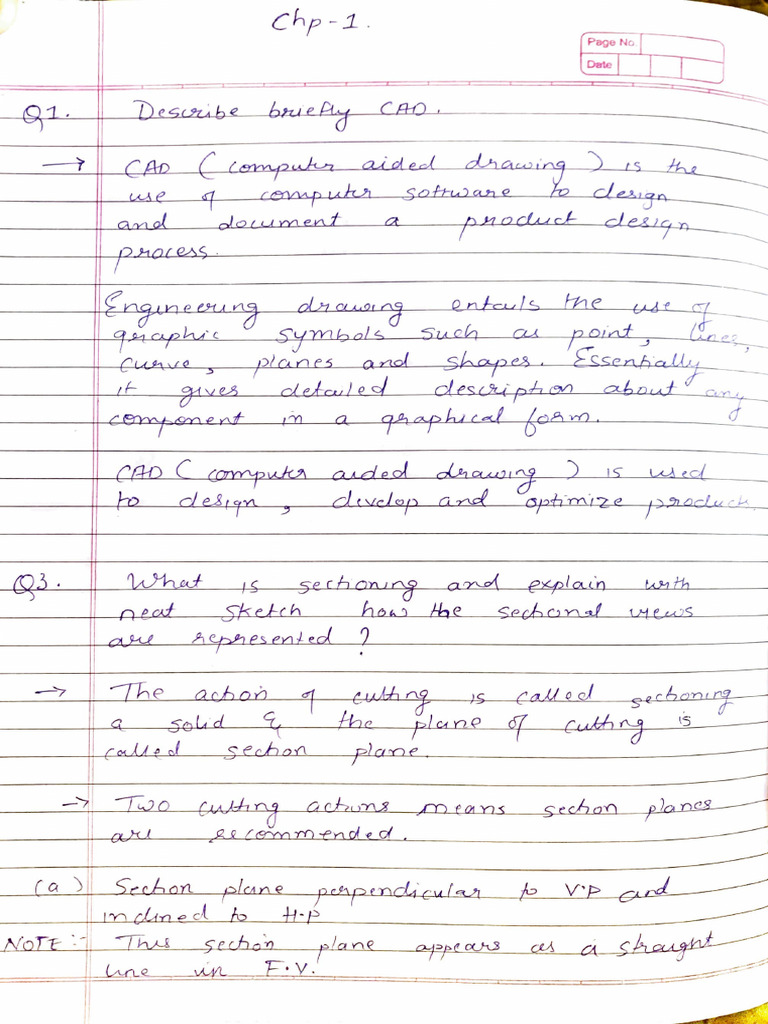 Chp-1.
Page No.
Date
Q1. Describe briefly CAD.
→ CAD (computer aided drawing) is the
use of computer software to design
and document a product design
process.
Engineering drawing entails the use of
graphic symbols such as point, lines,
curve, planes and shapes. Essentially
it gives detailed description about any
component in a graphical form.
CAD (computer aided drawing) is used
to design, develop and optimize product.
Q3. What is sectioning and explain with
neat sketch how the sectional views
are represented?
→ The action of cutting is called sectioning
a solid & the plane of cutting is
called section plane.
→ Two cutting actions means section planes
are recommended.
(a) Section plane perpendicular to V.P and
inclined to H.P
NOTE:- This section plane appears as a straight
line in F.V.